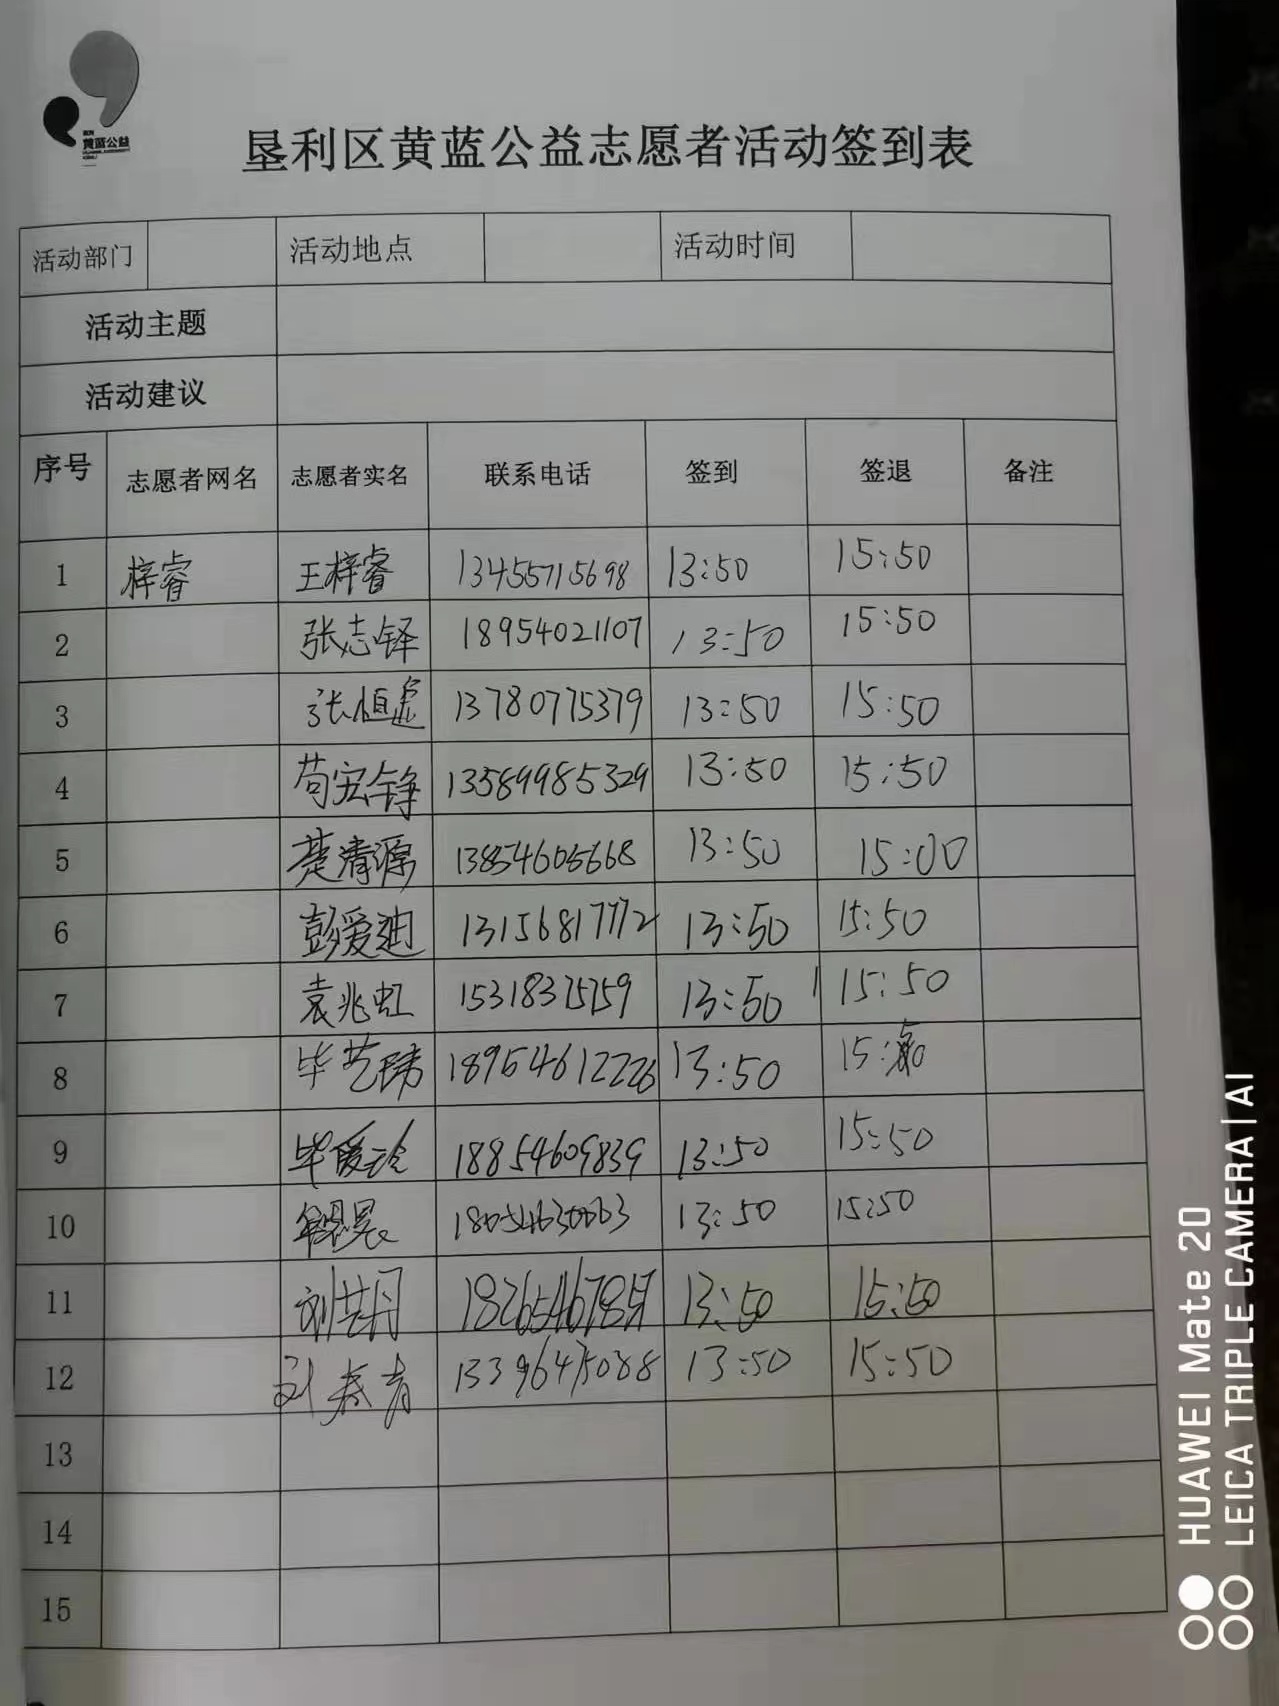 黄蓝公益
垦利区黄蓝公益志愿者活动签到表
活动部门 活动地点 活动时间
活动主题
活动建议
序号 志愿者网名 志愿者实名 联系电话 签到 签退 备注
1 梓睿 王梓睿 13455715698 13:50 15:50
2 张志铎 18954021107 13:50 15:50
3 张恒 13780775379 13:50 15:50
4 苟宏铮 13589985329 13:50 15:50
5 楚清源 13854605668 13:50 15:00
6 彭爱迪 13156817772 13:50 15:50
7 袁兆虹 13:50 15:50
8 毕艺玮 18954612226 13:50 15:
9 毕爱玲 18854609839 13:50 15:50
10 13:50 15:50
11 刘 13:50 15:50
12 刘春青 13396475088 13:50 15:50
13
14
15
HUAWEI Mate 20
LEICA TRIPLE CAMERA | AI